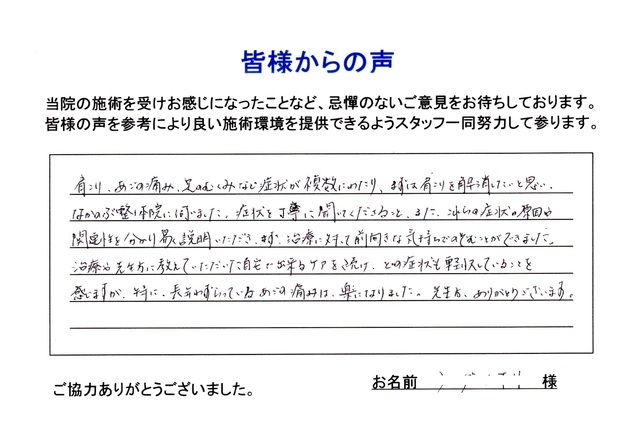 皆様からの声
当院の施術を受けお感じになったことなど、忌憚のないご意見をお待ちしております。
皆様の声を参考により良い施術環境を提供できるようスタッフ一同努力して参ります。
肩こり、あごの痛み、足のむくみなど症状が複数にわたり、まずは肩こりを解消したいと思い、
なかのぶ整体院に伺いました。症状を丁寧に聞いてくださること、また、これらの症状の原因や
関連性を分かり易く説明いただき、まず、治療に対して前向きな気持ちでのぞむことができました。
治療や先生方に教えていただいた自宅で出来るケアを続け、どの症状も軽減していることを
感じますが、特に、長年わずらっているあごの痛みは、楽になりました。先生方、ありがとうございます。
ご協力ありがとうございました。
お名前 様